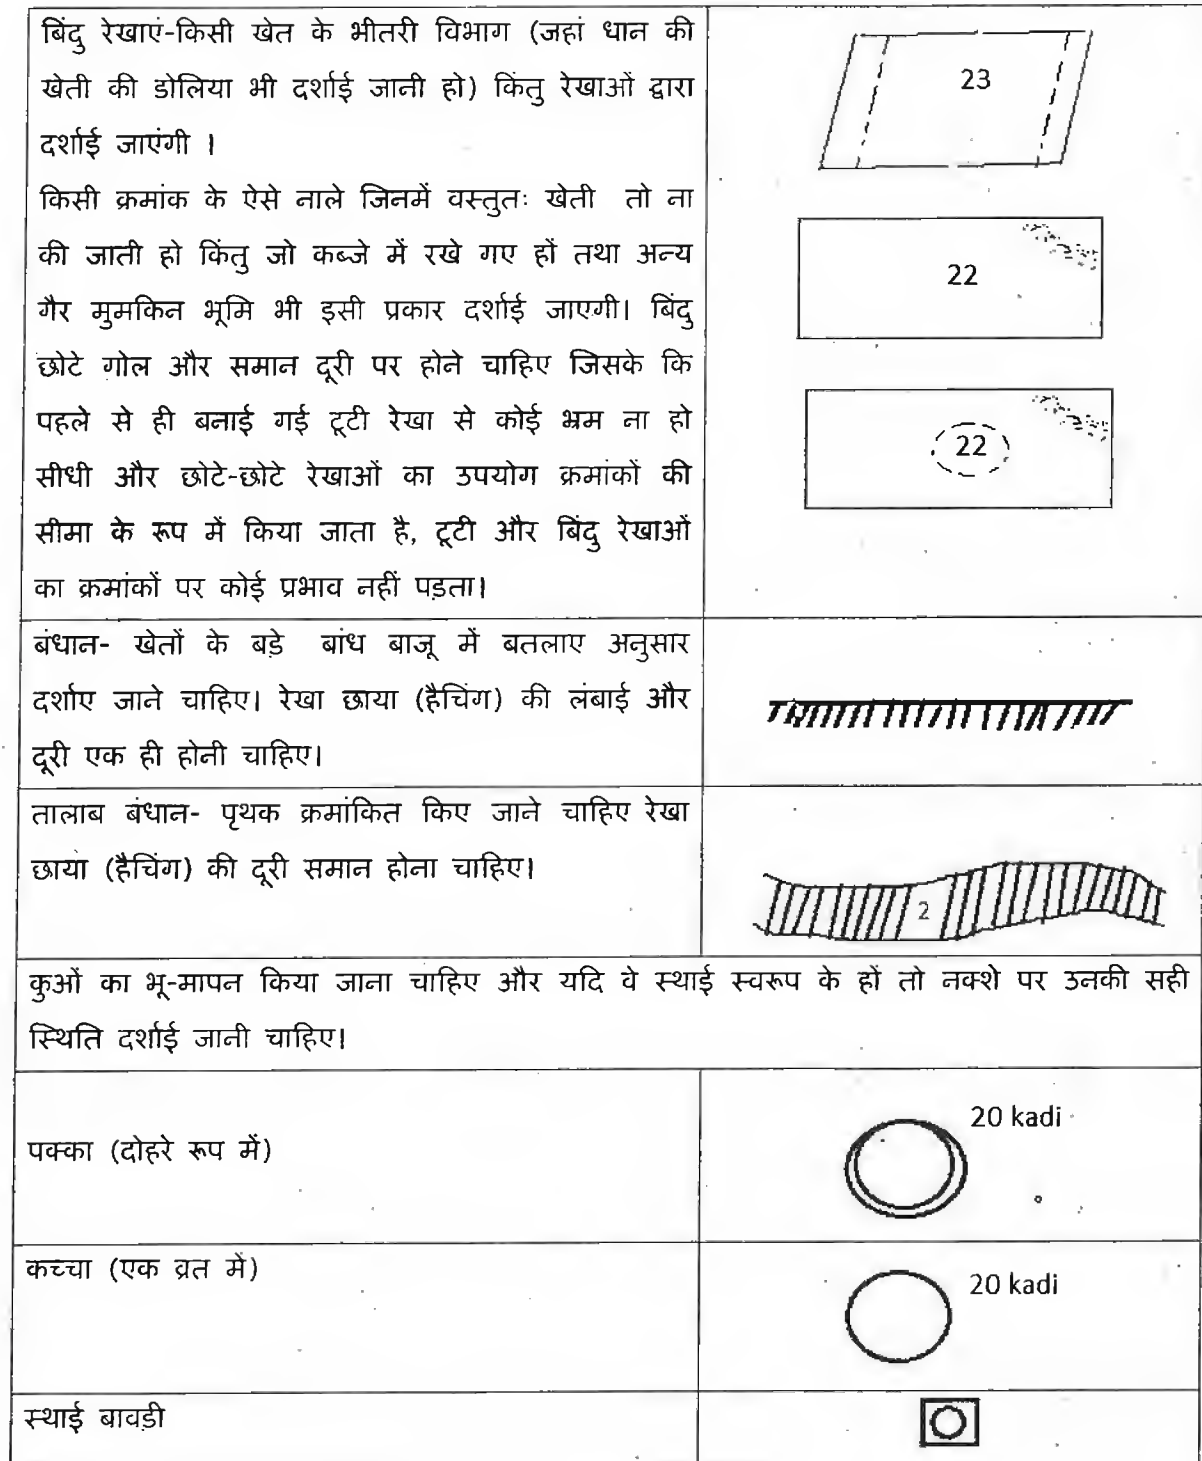 बिंदु रेखाएं-किसी खेत के भीतरी विभाग (जहां धान की
खेती की डोलिया भी दर्शाई जानी हो) किंतु रेखाओं द्वारा
दर्शाई जाएंगी ।
किसी क्रमांक के ऐसे नाले जिनमें वस्तुतः खेती तो ना
की जाती हो किंतु जो कब्जे में रखे गए हों तथा अन्य
गैर मुमकिन भूमि भी इसी प्रकार दर्शाई जाएगी। बिंदु
छोटे गोल और समान दूरी पर होने चाहिए जिसके कि
पहले से ही बनाई गई टूटी रेखा से कोई भ्रम ना हो
सीधी और छोटे-छोटे रेखाओं का उपयोग क्रमांकों की
सीमा के रूप में किया जाता है, टूटी और बिंदु रेखाओं
का क्रमांकों पर कोई प्रभाव नहीं पड़ता।
23
22
22
बंधान- खेतों के बड़े बांध बाजू में बतलाए अनुसार
दर्शाए जाने चाहिए। रेखा छाया (हैचिंग) की लंबाई और
दूरी एक ही होनी चाहिए।
तालाब बंधान- पृथक क्रमांकित किए जाने चाहिए रेखा
छाया (हैचिंग) की दूरी समान होना चाहिए।
2
कुओं का भू-मापन किया जाना चाहिए और यदि वे स्थाई स्वरूप के हों तो नक्शे पर उनकी सही
स्थिति दर्शाई जानी चाहिए।
पक्का (दोहरे रूप में)
20 kadi
कच्चा (एक व्रत में)
20 kadi
स्थाई बावड़ी